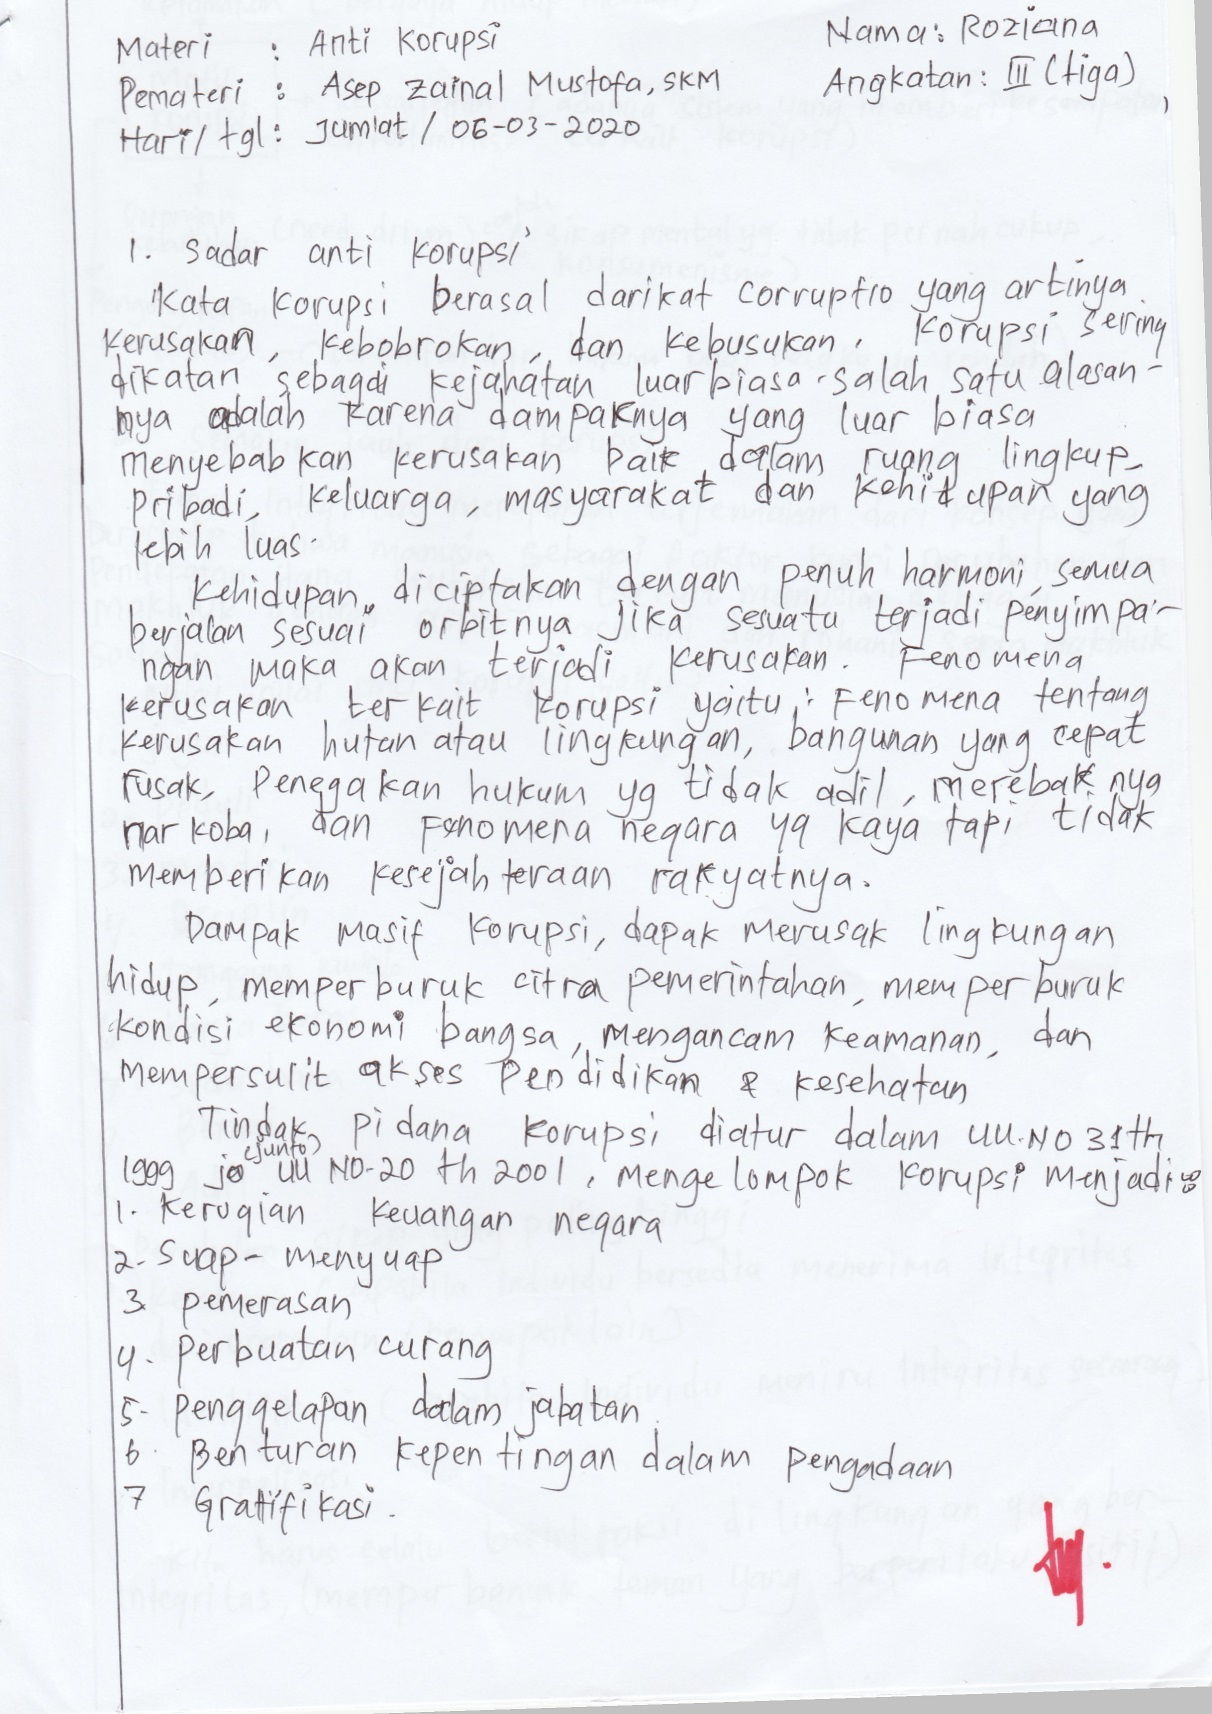 Materi : Anti Korupsi
Nama : Roziana
Pemateri : Asep Zainal Mustofa, SKM
Angkatan : III (tiga)
Hari/tgl : Jum'at / 06-03-2020
1. Sadar anti korupsi
Kata korupsi berasal darikat corruptio yang artinya
kerusakan, kebobrokan, dan kebusukan, korupsi sering
dikatan sebagai kejahatan luar biasa. salah satu alasan-
nya adalah karena dampaknya yang luar biasa
menyebabkan kerusakan baik dalam ruang lingkup
pribadi, keluarga, masyarakat dan kehidupan yang
lebih luas.
Kehidupan diciptakan dengan penuh harmoni, semua
berjalan sesuai orbitnya jika sesuatu terjadi penyimpa-
ngan maka akan terjadi kerusakan. Fenomena
kerusakan terkait korupsi yaitu : Fenomena tentang
kerusakan hutan atau lingkungan, bangunan yang cepat
rusak, Penegakan hukum yg tidak adil, merebaknya
narkoba, dan Fenomena negara yg kaya tapi tidak
memberikan kesejahteraan rakyatnya.
Dampak masif korupsi, dapak merusak lingkungan
hidup, memperburuk citra pemerintahan, memperburuk
kondisi ekonomi bangsa, mengancam keamanan, dan
mempersulit akses pendidikan & kesehatan
Tindak pidana korupsi diatur dalam UU.NO 31 th
(junto)
1999 jo UU NO-20 th 2001, mengelompok korupsi menjadi :
1. kerugian keuangan negara
2. Suap-menyuap
3. pemerasan
4. perbuatan curang
5. penggelapan dalam jabatan.
6. Benturan kepentingan dalam pengadaan
7 Gratifikasi.